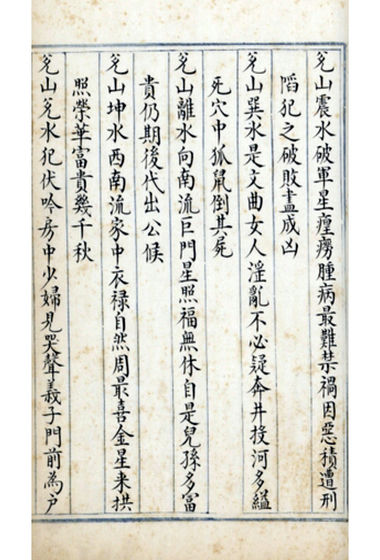 兊山震水破軍星瘟癆腫病最難禁禍因惡積遭刑
䧟犯之破敗盡成凶
兊山巽水是文曲女人淫亂不必疑奔井投河多縊
死穴中狐鼠倒其屍
兊山離水向南流巨門星照福無休自是兒孫多富
貴仍期後代出公候
兊山坤水西南流家中衣禄自然周最喜金星来拱
照榮華富貴幾千秋
兊山兊水犯伏吟房中少婦見哭聲義子門前為户